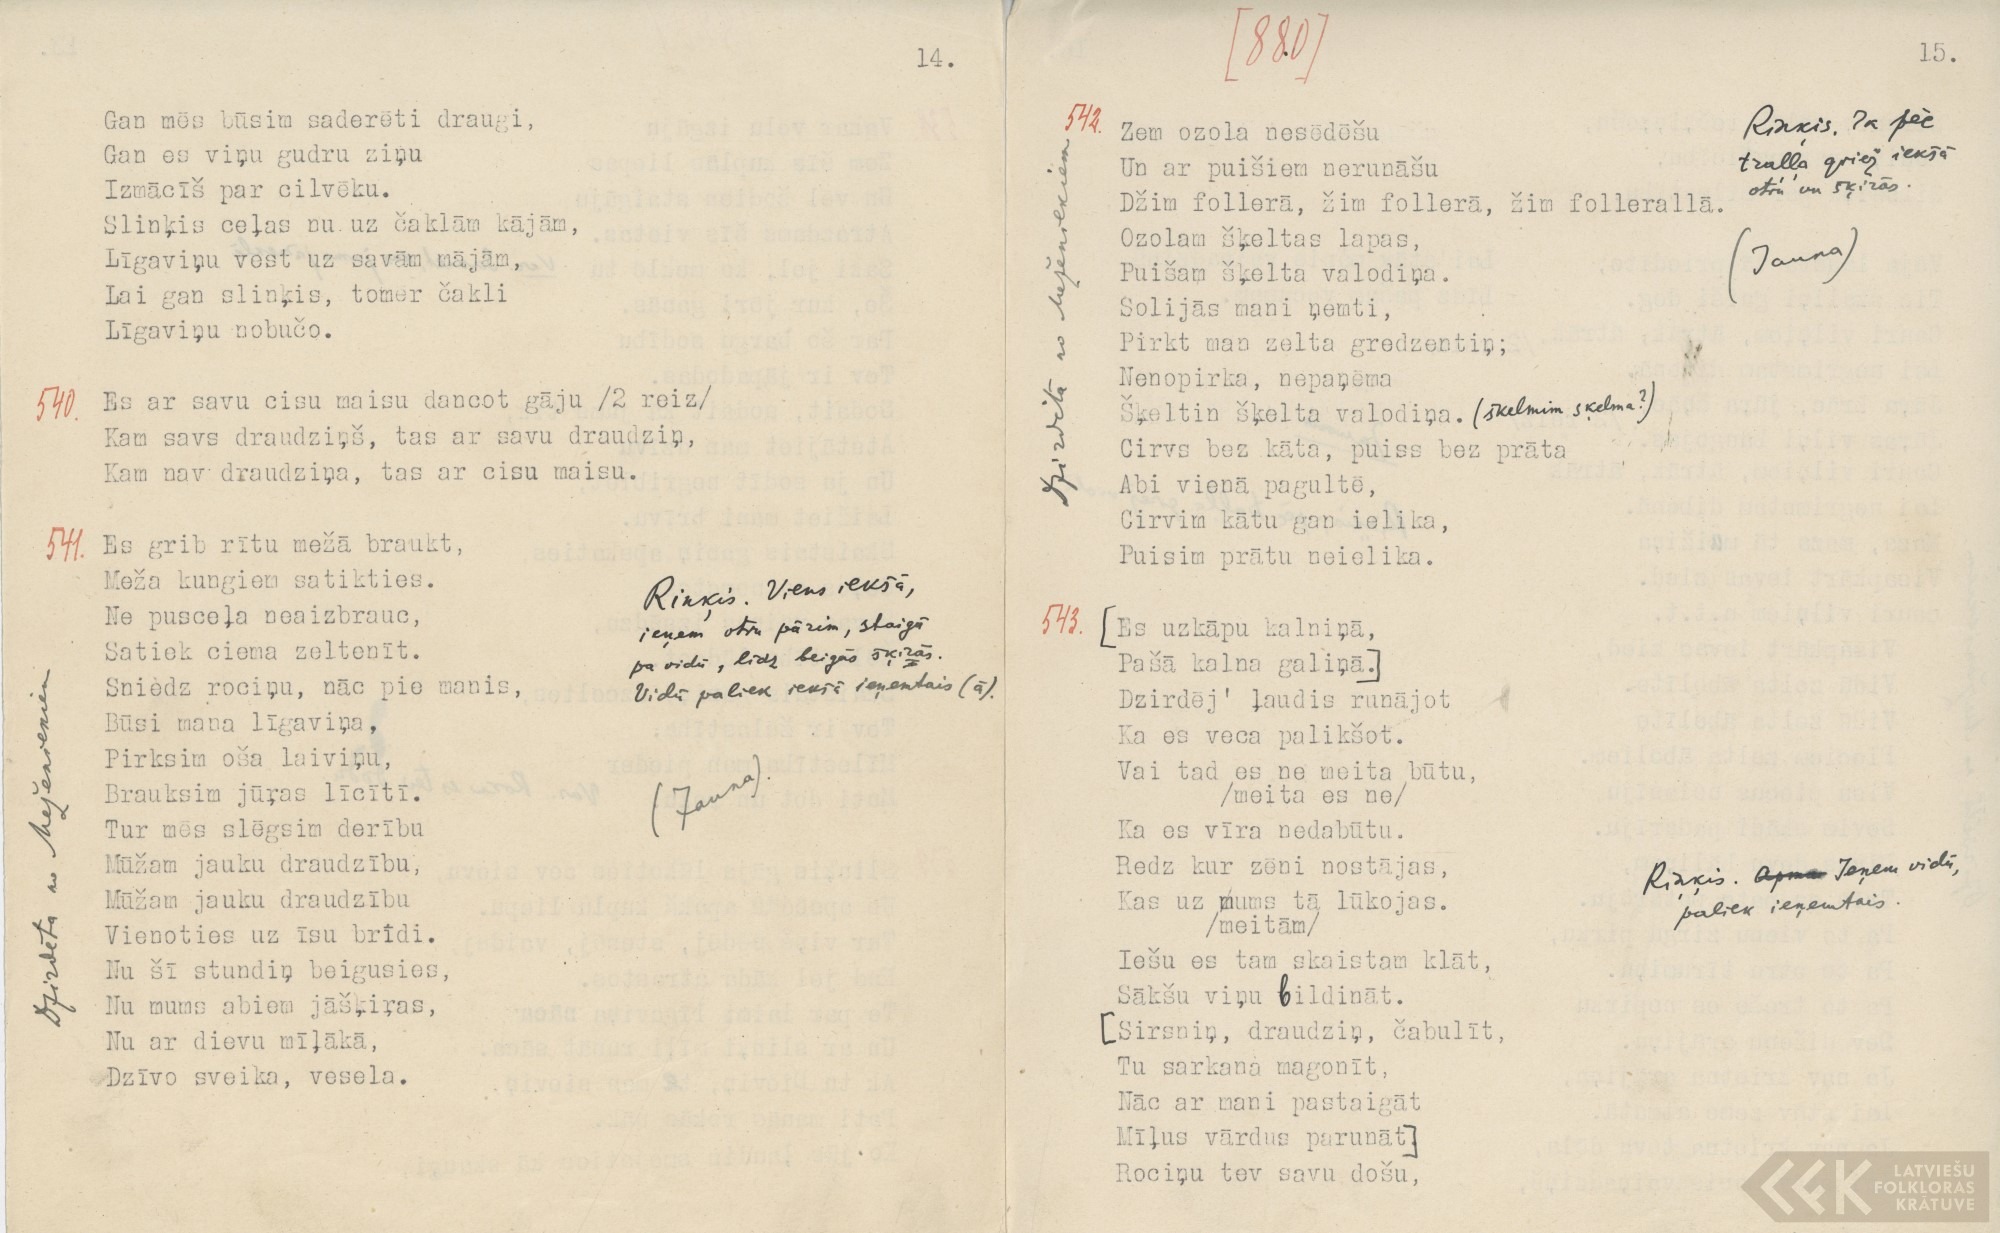 14.
Gan mēs būsim saderēti draugi,
Gan es viņu gudru ziņu
Izmācīš par cilvēku.
Slinķis ceļas nu uz čaklām kājām,
Līgaviņu vest uz savām mājām,
Lai gan slinķis, tomēr čakli
Līgaviņu nobučo.
540.
Es ar savu cisu maisu dancot gāju /2 reiz/
Kam savs draudziņš, tas ar savu draudziņ,
Kam nav draudziņa, tas ar cisu maisu.
541.
Es grib rītu mežā braukt,
Meža kungiem satikties.
Ne pusceļa neaizbrauc,
Satiek ciema zeltenīt.
Sniedz rociņu, nāc pie manis,
Būsi mana līgaviņa,
Pirksim oša laiviņu,
Brauksim jūŗas līcītī.
Tur mēs slēgsim derību
Mūžam jauku draudzību,
Mūžam jauku draudzību
Vienoties uz īsu brīdi.
Nu šī stundiņ beigusies,
Nu mums abiem jāšķiŗas,
Nu ar dievu mīļākā,
Dzīvo sveika, vesela.
Dzirdēta no Mežениekiem
Riņķis. Viens iekšā,
ieņem otru pārim, staigā
pa vidu, līdz beigās šķirās.
Vidū paliek iekšā ieņemtais (ā).
(Jauna).
[880]
15.
542.
Zem ozola nesēdēšu
Un ar puišiem nerunāšu
Džim follerā, žim follerā, žim follerallā.
Ozolam šķeltas lapas,
Puišam šķelta valodiņa.
Solijās mani ņemti,
Pirkt man zelta gredzentiņ;
Nenopirka, nepaņēma
Šķeltin šķelta valodiņa. (škelmim šķelma?)
Cirvs bez kāta, puiss bez prāta
Abi vienā pagultē,
Cirvim kātu gan ielika,
Puisim prātu neielika.
Dzirdēta no Mežениekiem
Riņķis. Ik pēc
traļļa griež iekšā
otru un šķirās.
(Jauna)
543.
[Es uzkāpu kalniņā,
Pašā kalna galiņā.]
Dzirdēj' ļaudis runājot
Ka es veca palikšot.
Vai tad es ne meita būtu,
/meita es ne/
Ka es vīra nedabūtu.
Redz kur zēni nostājas,
Kas uz mums tā lūkojas.
/meitām/
Iešu es tam skaistam klāt,
Sākšu viņu bildināt.
[Sirsniņ, draudziņ, čabulīt,
Tu sarkanā magonīt,
Nāc ar mani pastaigāt
Mīļus vārdus parunāt]
Rociņu tev savu došu,
Riņķis. Ieņem vidū,
paliek ieņemtais.
LATVIEŠU
FOLKLORAS
KRĀTUVE